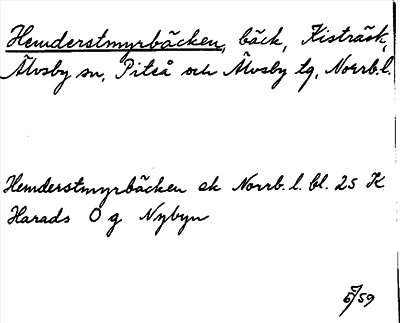 Hemderstmyrbäcken, bäck, Kisträsk,
Älvsby sn, Piteå och Älvsby tg, Norrb.l.
Hemderstmyrbäcken ek Norrb. l. bl. 25 K
Harads Ö g Nybyn
5/6 59